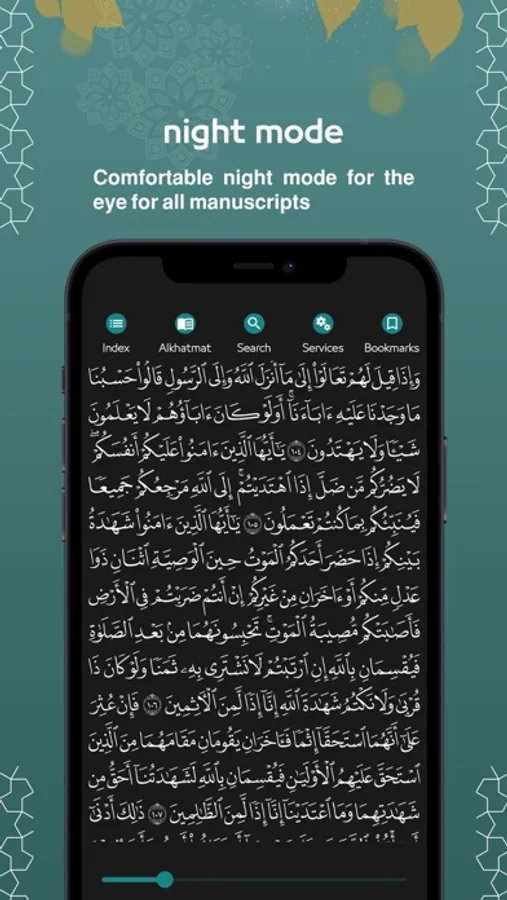 night mode
Comfortable night mode for the
eye for all manuscripts
Index Alkhatmat Search Services Bookmarks
وَإِذَا قِيلَ لَهُمْ تَعَالَوْا۟ إِلَىٰ مَآ أَنزَلَ ٱللَّهُ وَإِلَى ٱلرَّسُولِ قَالُوا۟ حَسْبُنَا
مَا وَجَدْنَا عَلَيْهِ ءَابَآءَنَآ ۚ أَوَلَوْ كَانَ ءَابَآؤُهُمْ لَا يَعْلَمُونَ
شَيْـًٔا وَلَا يَهْتَدُونَ ١٠٤ يَـٰٓأَيُّهَا ٱلَّذِينَ ءَامَنُوا۟ عَلَيْكُمْ أَنفُسَكُمْ ۖ
لَا يَضُرُّكُم مَّن ضَلَّ إِذَا ٱهْتَدَيْتُمْ ۚ إِلَى ٱللَّهِ مَرْجِعُكُمْ جَمِيعًا
فَيُنَبِّئُكُم بِمَا كُنتُمْ تَعْمَلُونَ ١٠٥ يَـٰٓأَيُّهَا ٱلَّذِينَ ءَامَنُوا۟ شَهَـٰدَةُ
بَيْنِكُمْ إِذَا حَضَرَ أَحَدَكُمُ ٱلْمَوْتُ حِينَ ٱلْوَصِيَّةِ ٱثْنَانِ ذَوَا
عَدْلٍ مِّنكُمْ أَوْ ءَاخَرَانِ مِنْ غَيْرِكُمْ إِنْ أَنتُمْ ضَرَبْتُمْ فِى ٱلْأَرْضِ
فَأَصَـٰبَتْكُم مُّصِيبَةُ ٱلْمَوْتِ ۚ تَحْبِسُونَهُمَا مِنۢ بَعْدِ ٱلصَّلَوٰةِ
فَيُقْسِمَانِ بِٱللَّهِ إِنِ ٱرْتَبْتُمْ لَا نَشْتَرِى بِهِۦ ثَمَنًا وَلَوْ كَانَ ذَا
قُرْبَىٰ ۙ وَلَا نَكْتُمُ شَهَـٰدَةَ ٱللَّهِ إِنَّآ إِذًا لَّمِنَ ٱلْـَٔاثِمِينَ ١٠٦ فَإِنْ عُثِرَ
عَلَىٰٓ أَنَّهُمَا ٱسْتَحَقَّآ إِثْمًا فَـَٔاخَرَانِ يَقُومَانِ مَقَامَهُمَا مِنَ ٱلَّذِينَ
ٱسْتَحَقَّ عَلَيْهِمُ ٱلْأَوْلَيَـٰنِ فَيُقْسِمَانِ بِٱللَّهِ لَشَهَـٰدَتُنَآ أَحَقُّ مِن
شَهَـٰدَتِهِمَا وَمَا ٱعْتَدَيْنَآ إِنَّآ إِذًا لَّمِنَ ٱلظَّـٰلِمِينَ ١٠٧ ذَٰلِكَ أَدْنَىٰٓ